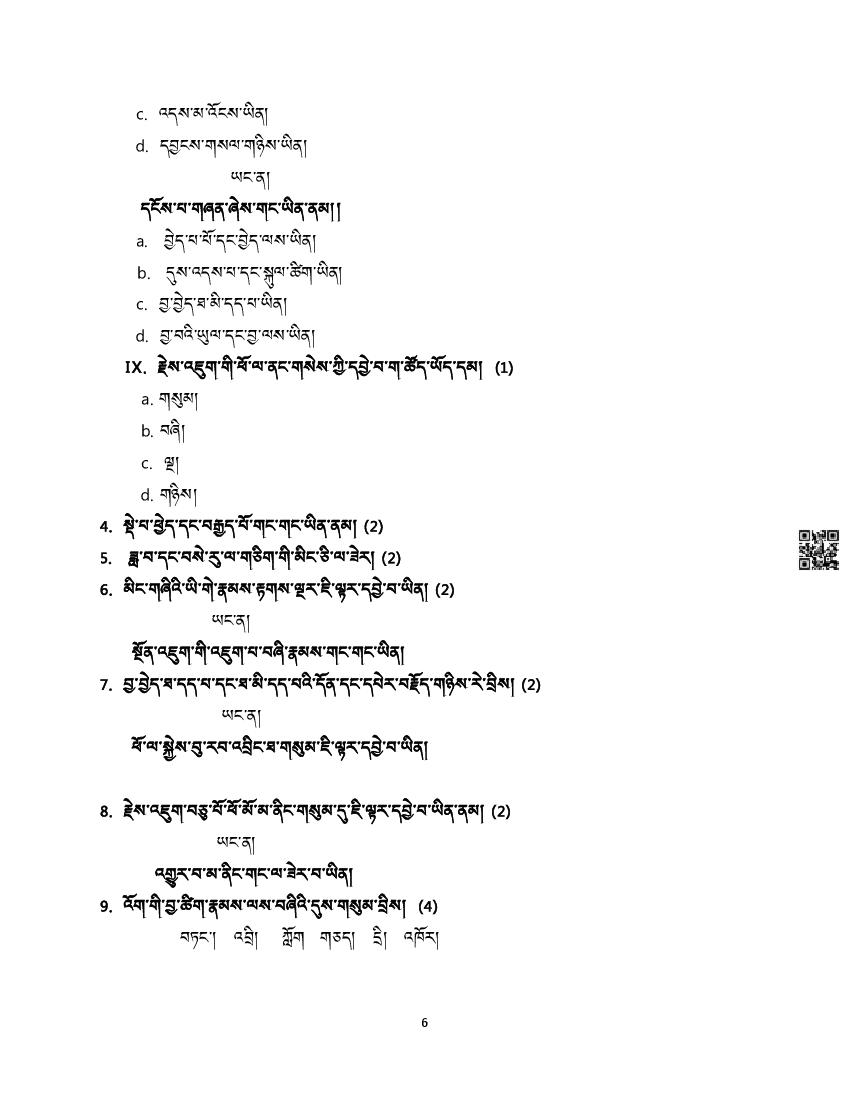 c. འདས་མ་འོངས་ཡིན།
d. དབྱངས་གསལ་གཉིས་ཡིན།
ཡང་ན།
དངོས་པ་གཞན་ཞེས་གང་ཡིན་ནམ།།
a. བྱེད་པ་པོ་དང་བྱེད་ལས་ཡིན།
b. དུས་འདས་པ་དང་སྐུལ་ཚིག་ཡིན།
c. བྱ་བྱེད་ཐ་མི་དད་པ་ཡིན།
d. བྱ་བའི་ཡུལ་དང་བྱ་ལས་ཡིན།
IX. རྗེས་འཇུག་གི་ཕོ་ལ་ནང་གསེས་ཀྱི་དབྱེ་བ་ག་ཚོད་ཡོད་དམ། (1)
a. གསུམ།
b. བཞི།
c. ལྔ།
d. གཉིས།
4. སྡེ་པ་ཕྱེད་དང་བརྒྱད་པོ་གང་གང་ཡིན་ནམ། (2)
5. ཟླ་བ་དང་བསེ་རུ་ལ་གཅིག་གི་མིང་ཅི་ལ་ཟེར། (2)
6. མིང་གཞིའི་ཡི་གེ་རྣམས་རྟགས་ལྔར་ཇི་ལྟར་དབྱེ་བ་ཡིན། (2)
ཡང་ན།
སྔོན་འཇུག་གི་འཇུག་པ་བཞི་རྣམས་གང་གང་ཡིན།
7. བྱ་བྱེད་ཐ་དད་པ་དང་ཐ་མི་དད་པའི་དོན་དང་དཔེར་བརྗོད་གཉིས་རེ་བྲིས། (2)
ཡང་ན།
ཕོ་ལ་སྐྱེས་བུ་རབ་འབྲིང་ཐ་གསུམ་ཇི་ལྟར་དབྱེ་བ་ཡིན།
8. རྗེས་འཇུག་བཅུ་པོ་ཕོ་མོ་མ་ནིང་གསུམ་དུ་ཇི་ལྟར་དབྱེ་བ་ཡིན་ནམ། (2)
ཡང་ན།
འགྱུར་བ་མ་ནིང་གང་ལ་ཟེར་བ་ཡིན།
9. འོག་གི་བྱ་ཚིག་རྣམས་ལས་བཞིའི་དུས་གསུམ་བྲིས། (4)
བཏང་། འབྲི། ཀློག གཅད། དྲི། འཁོར།
6